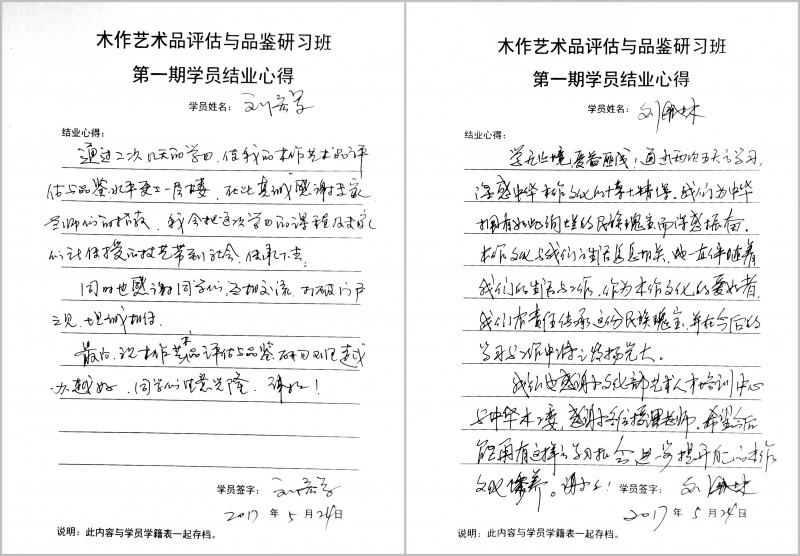 木作艺术品评估与品鉴研习班
第一期学员结业心得
学员姓名：刘宏学
结业心得：
通过二次几天的学习，使我的木作艺术品评
估与品鉴水平更上一层楼，在此真诚感谢专家
老师们的招数，我会把这次学习的课程及专家
们传授的技艺带到社会，传承下去。
同时也感谢同学们，互相交流，打破门户
之见，坦诚相待。
最后，祝木作艺术品评估与品鉴研习班越
办越好，同学们生意兴隆，谢谢！
学员签字：刘宏学
2017 年 5 月 24 日
说明：此内容与学员学籍表一起存档。
木作艺术品评估与品鉴研习班
第一期学员结业心得
学员姓名：刘
结业心得：
学无止境，受益匪浅！通过两次五天之学习，
深感中华木作文化的博大精深，我们为中华
拥有如此的民族瑰宝而深感振奋。
木作文化与我们的生活息息相关，她一直伴随着
我们的生活与工作，作为木作文化的爱好者，
我们有责任传承这份民族瑰宝，并在今后的
学习与工作中将之发扬光大。
我们也感谢文化部艺术人才培训中心
与中华木工委，感谢各位授课老师，希望今后
能再有这样的学习机会进一步提升自己的木作
文化修养。谢谢！
学员签字：刘
2017 年 5 月 24 日
说明：此内容与学员学籍表一起存档。